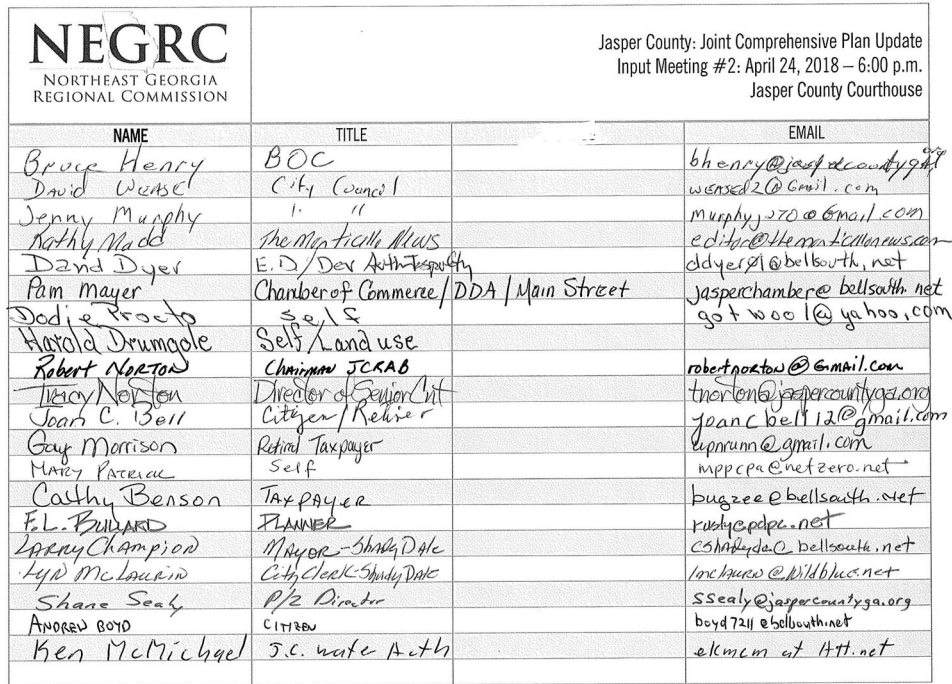 NEGRC
NORTHEAST GEORGIA
REGIONAL COMMISSION
Jasper County: Joint Comprehensive Plan Update
Input Meeting #2: April 24, 2018 – 6:00 p.m.
Jasper County Courthouse
NAME TITLE EMAIL
Bruce Henry BOC bhenry@jaspercountyga.org
David Wease City Council weased2@Gmail.com
Jenny Murphy " " murphyj270@Gmail.com
Kathy Mudd The Monticello News editor@themonticellonews.com
David Dyer E.D/Dev Auth-Jasper Cty ddyer01@bellsouth.net
Pam Mayer Chamber of Commerce/DDA/Main Street jasperchamber@bellsouth.net
Dodie Procto Self gotwool@yahoo.com
Harold Drumgole Self/Land use
Robert Norton Chairman JCRAB robertnorton@Gmail.com
Tracy Norton Director of Senior Cnt tnorton@jaspercountyga.org
Joan C. Bell Citizen/Retiree joancbell12@gmail.com
Gay Morrison Retired Taxpayer @gmail.com
Mary Patrick Self mppcpa@netzero.net
Cathy Benson Taxpayer bugzee@bellsouth.net
F.L. Bullard Planner rusty@pdpc.net
Larry Champion Mayor-Shady Dale cshadyda@bellsouth.net
Lyn McLaurin City Clerk-Shady Dale lmclaurn@Wildblue.net
Shane Sealy P/Z Director ssealy@jaspercountyga.org
Andrew Boyd Citizen boyd7211@bellsouth.net
Ken McMichael J.C. water Auth ekmcm at Att.net